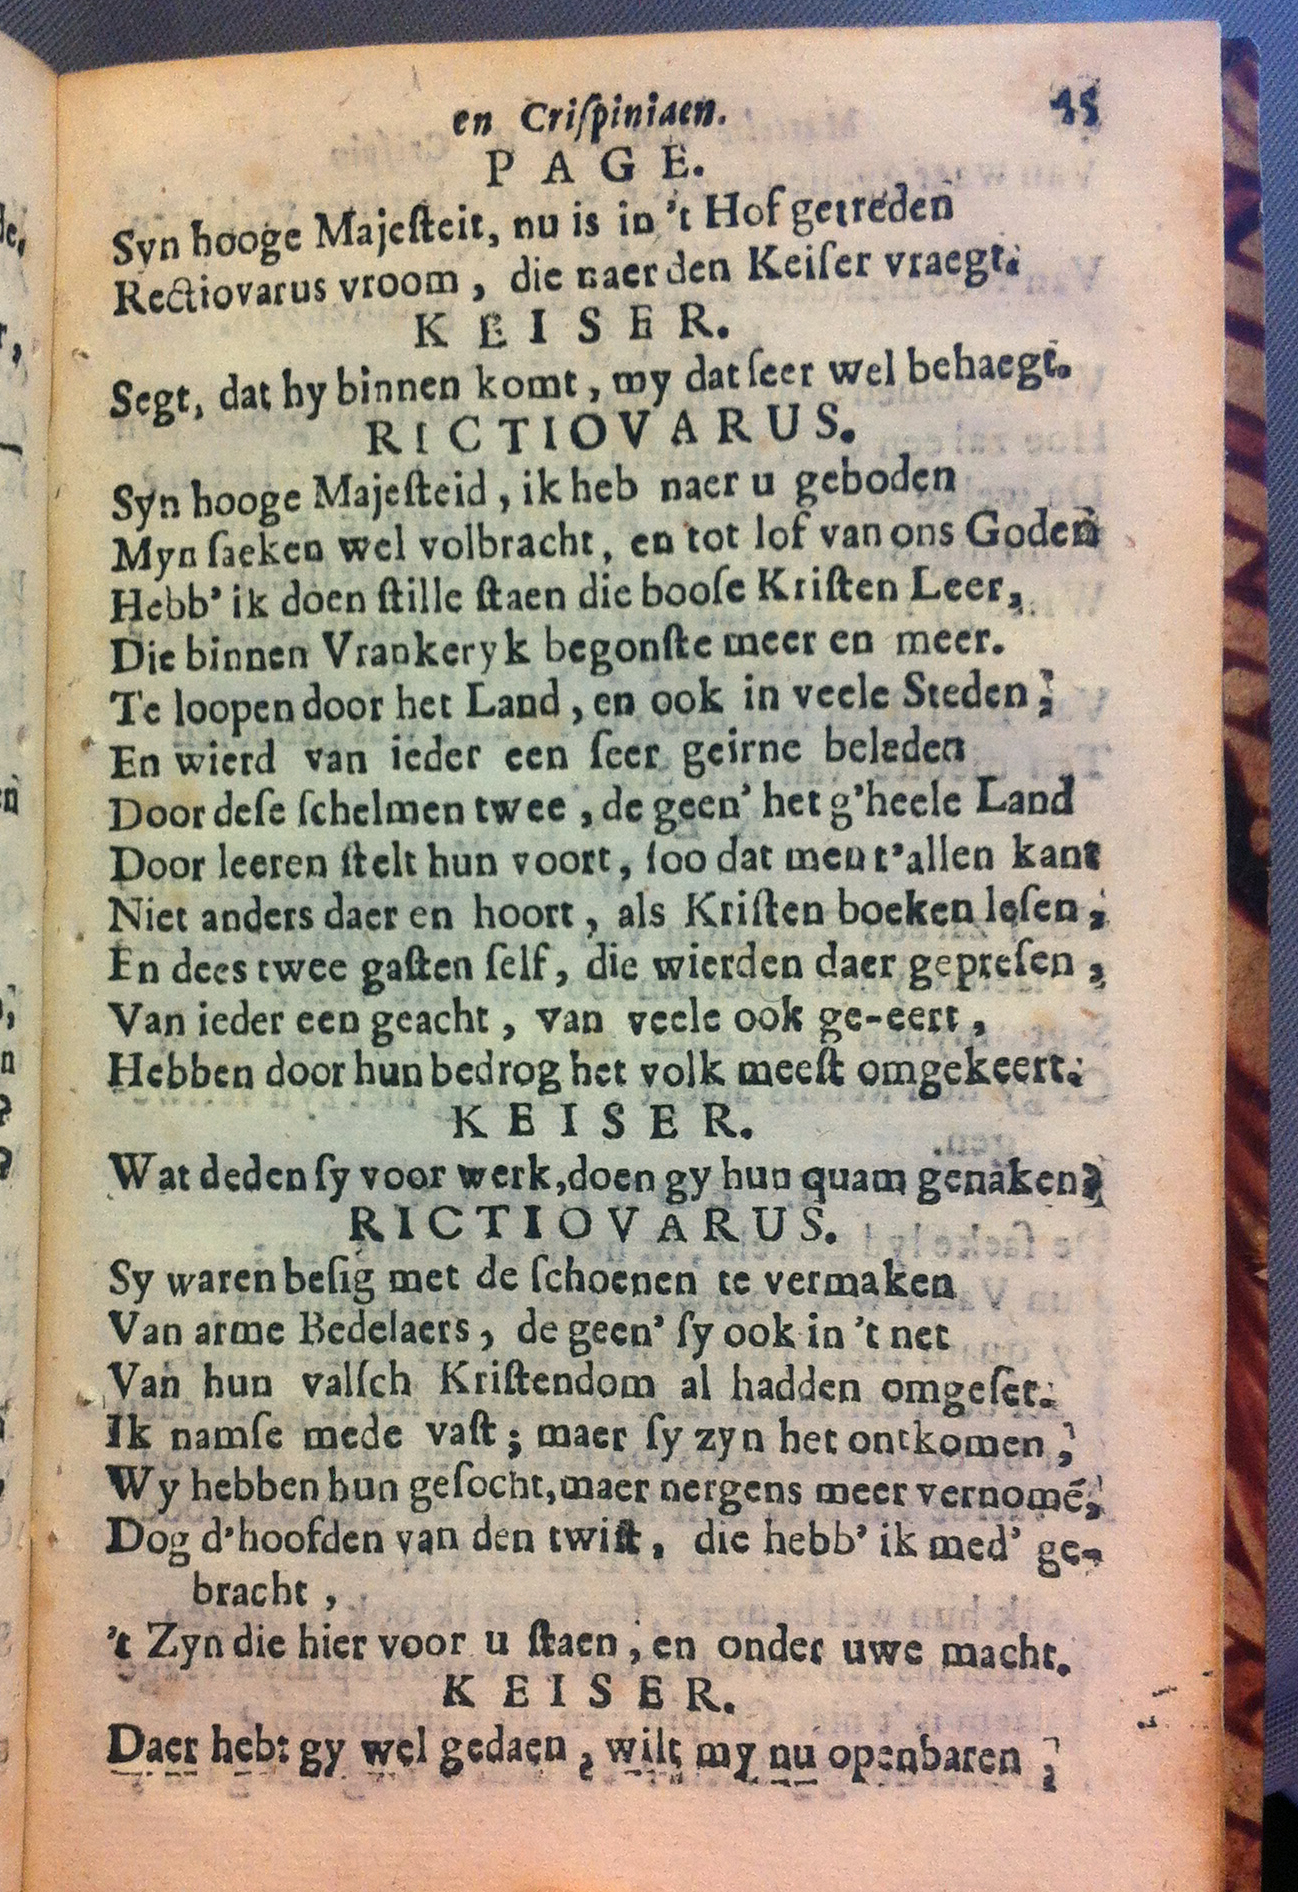 en Criſpiniaen. 45
PAGE.
Syn hooge Majeſteit, nu is in 't Hof getreden
Rectiovarus vroom, die naer den Keiſer vraegt.
KEISER.
Segt, dat hy binnen komt, my dat ſeer wel behaegt.
RICTIOVARUS.
Syn hooge Majeſteid, ik heb naer u geboden
Myn ſaeken wel volbracht, en tot lof van ons Goden
Hebb' ik doen ſtille ſtaen die booſe Kriſten Leer,
Die binnen Vrankeryk begonſte meer en meer.
Te loopen door het Land, en ook in veele Steden;
En wierd van ieder een ſeer geirne beleden
Door deſe ſchelmen twee, de geen' het g'heele Land
Door leeren ſtelt hun voort, ſoo dat men t'allen kant
Niet anders daer en hoort, als Kriſten boeken leſen;
En dees twee gaſten ſelf, die wierden daer gepreſen,
Van ieder een geacht, van veele ook ge-eert,
Hebben door hun bedrog het volk meeſt omgekeert.
KEISER.
Wat deden ſy voor werk, doen gy hun quam genaken?
RICTIOVARUS.
Sy waren beſig met de ſchoenen te vermaken
Van arme Bedelaers, de geen' ſy ook in 't net
Van hun valſch Kriſtendom al hadden omgeſet.
Ik namſe mede vaſt; maer ſy zyn het ontkomen,
Wy hebben hun geſocht, maer nergens meer vernomē,
Dog d'hoofden van den twiſt, die hebb' ik med' ge-
bracht,
't Zyn die hier voor u ſtaen, en onder uwe macht.
KEISER.
Daer hebt gy wel gedaen, wilt my nu openbaren,